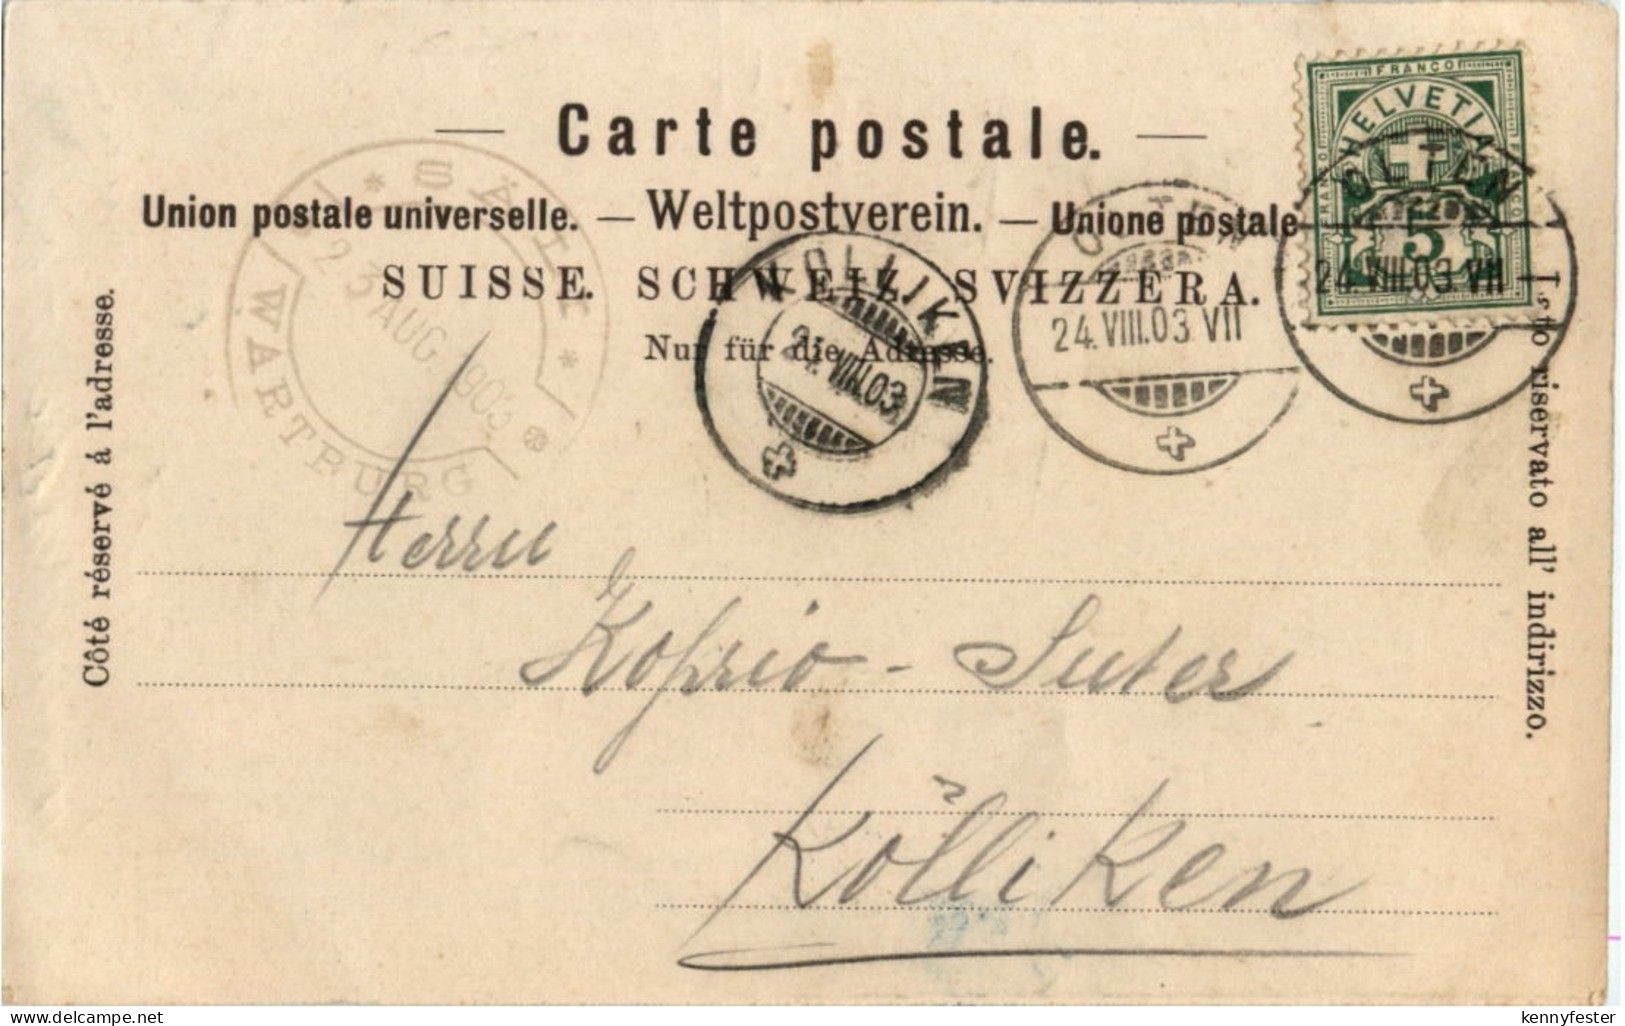 Carte postale.
Union postale universelle. — Weltpostverein. — Unione postale
SUISSE. SCHWEIZ. SVIZZERA.
Nur für die Adresse.
Côté réservé á l'adresse.
riservato all' indirizzo.
FRANCO
HELVETIA
FRANCO
FRANCO
5
OLTEN
24.VIII.03 VII
OLTEN
24.VIII.03 VII
KÖLLIKEN
24.VIII.03
SÄLI
23 AUG. 1903
WARTBURG
Herrn
Koprio - Suter
Kölliken
delcampe.net
kennyfester